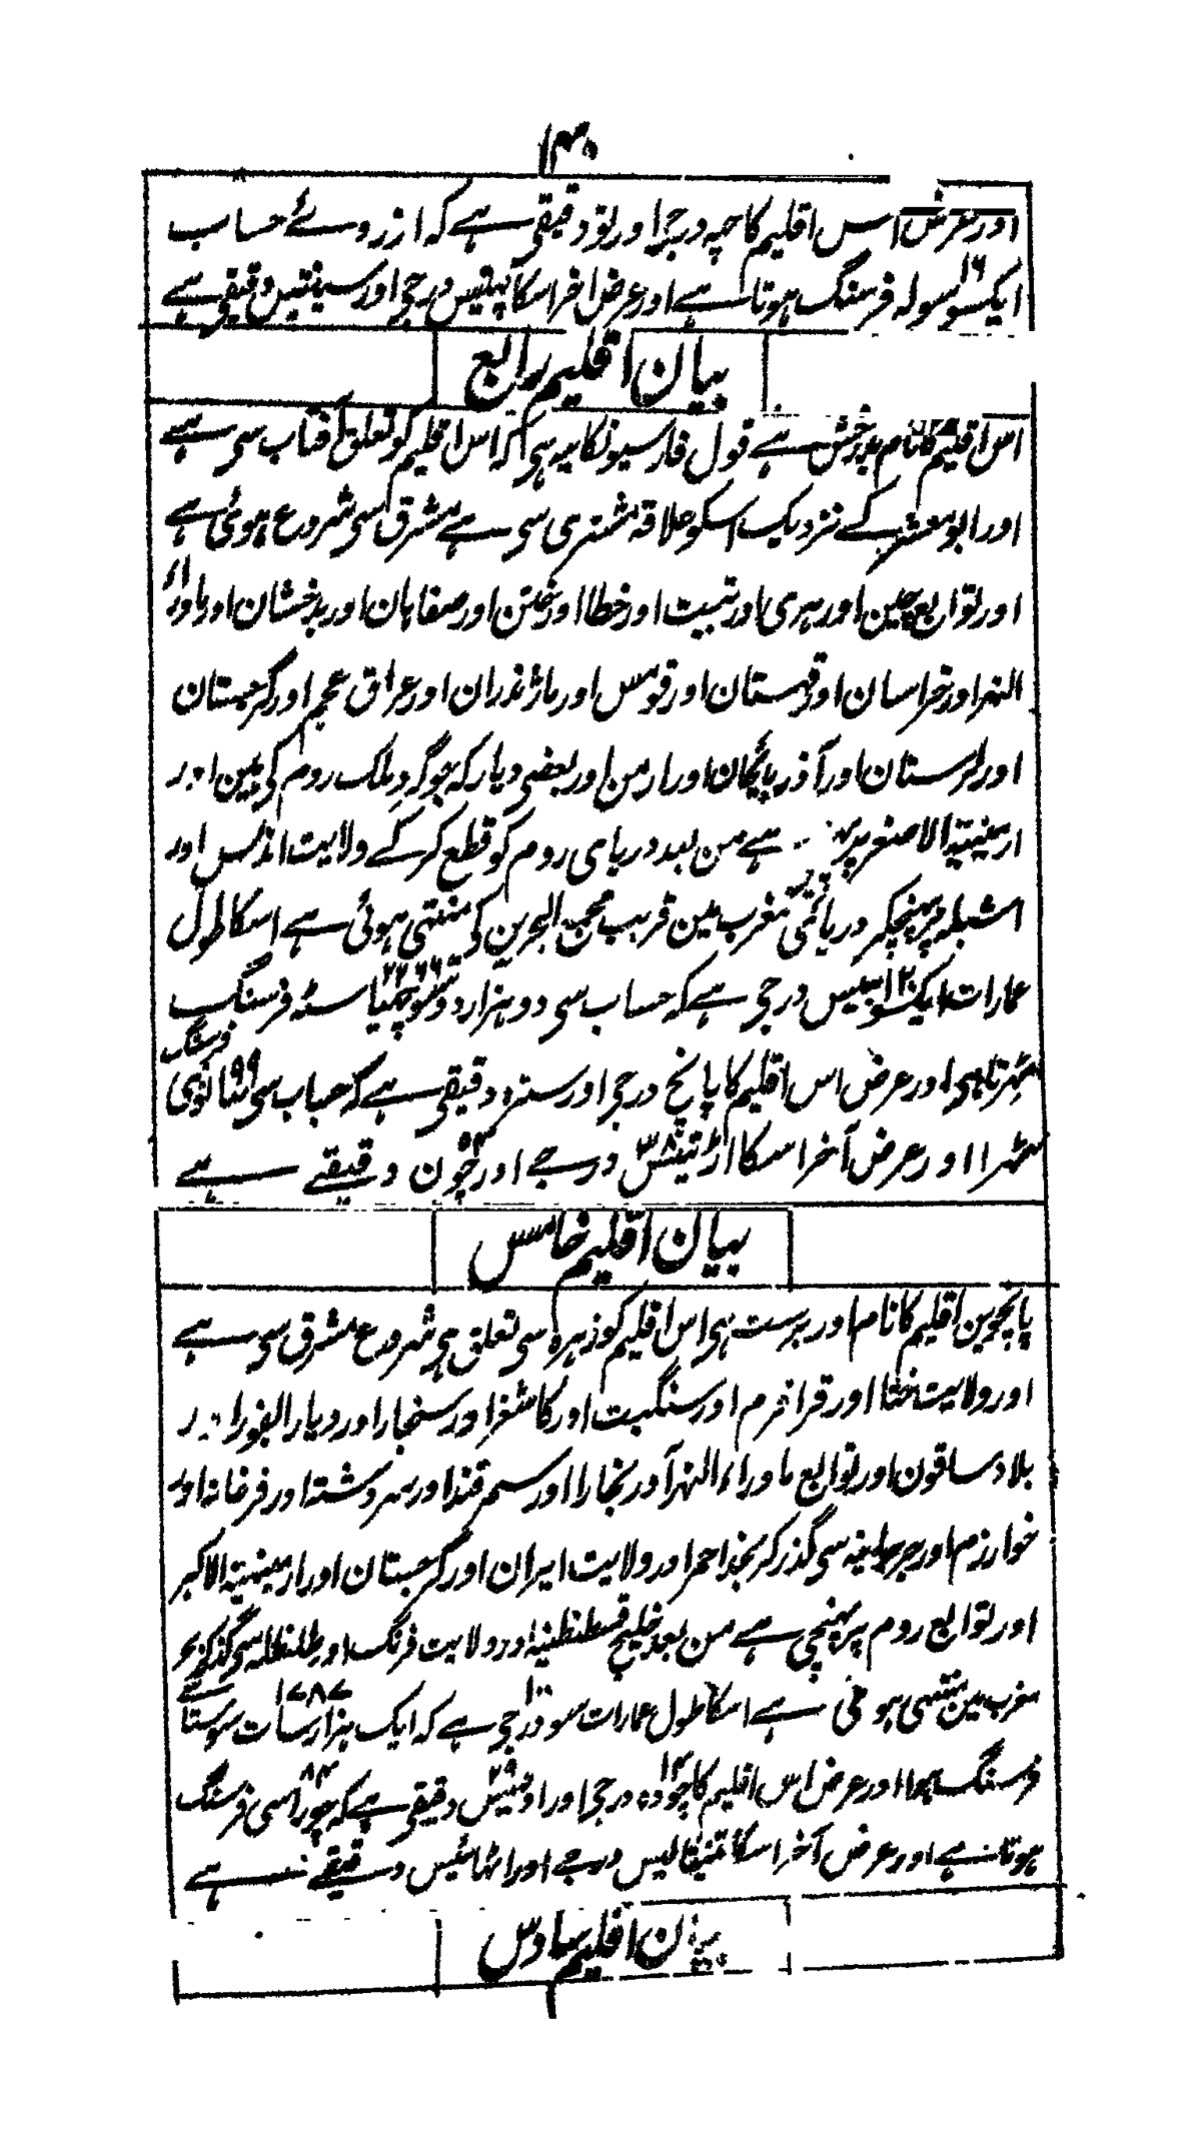 ۱۳۵
اور عرض اس اقلیم کا چہ درجی اور نو دقیقی ہے کہ از روئے حساب
ایکسو سولہ ۱۶ فرسنگ ہوتا ہے اور عرض اخر اسکا تینتیس درجی اور سینتیس دقیقی ہے
بیان اقلیم رابع
اس اقلیم کا نام ہے قول فارسیونکا یہ ہی کہ اس اقلیم کو تعلق آفتاب سی ہے
اور ابو معشر کے نزدیک اسکو علاقہ مشتری سی ہے مشرق سی شروع ہوئی ہے
اور توابع چین اور ہری اور تبت اور خطا اور ختن اور صفاہان اور بدخشان اور ماوراء
النہر اور خراسان اور قہستان اور قومس اور ماژندران اور عراق عجم اور کرجستان
اور لرستان اور آذربائیجان اور ارمن اور بعضی دیار کہ جو گرد ملک روم کی ہین اور
ارمینیۃ الاصغر پر ہے من بعد دریای روم کو قطع کر کے ولایت اندلس اور
اشبیلہ پر پہنچکر دریائے مغرب مین قریب مجمع البحرین کی منتہی ہوئی ہے اسکا طول
عمارات ایکسو درجی ہے کہ حساب سی دو ہزار دو سو چھیاسٹہ ۲۲۶۶ فرسنگ
ٹہرتا ہی اور عرض اس اقلیم کا پانچ درجی اور سترہ دقیقی ہے کہ حساب سی ننانوی ۹۹ فرسنگ
ٹہرا اور عرض آخر اسکا اڑتیس ۳۸ درجے اور چون ۵۴ دقیقے ہے
بیان اقلیم خامس
پانچوین اقلیم کا نام اور برست ہی اس اقلیم کو زہرہ سی تعلق ہی شروع مشرق سی ہے
اور ولایت ختا اور قراخرم اور سنگبت اور کاشغر اور سنجار اور دیار الغور اور
بلاد ساقون اور توابع ماوراء النہر اور بخارا اور سمرقند اور سروشتہ اور فرغانہ اور
خوارزم اور سی گذر کر ولایت ایران اور گرجستان اور ارمینیۃ الاکبر
اور توابع روم پر پہنچی ہے من بعد خلیج قسطنطنیہ اور ولایت فرنگ اور طلنطلہ سی گذر کر بحر
مغرب مین منتہی ہوئی ہے اسکا طول عمارات سو ۱۰۰ درجی ہے کہ ایک ہزار سات سو ستاسے ۱۷۸۷
فرسنگ ہوا اور عرض اس اقلیم کا چودہ ۱۴ درجی اور اونتیس ۲۹ دقیقی ہے کہ چوراسی ۸۴ فرسنگ
ہوتا ہے اور عرض آخر اسکا تینتالیس درجے اور اٹھائیس دقیقے ہے
بیان اقلیم سادس